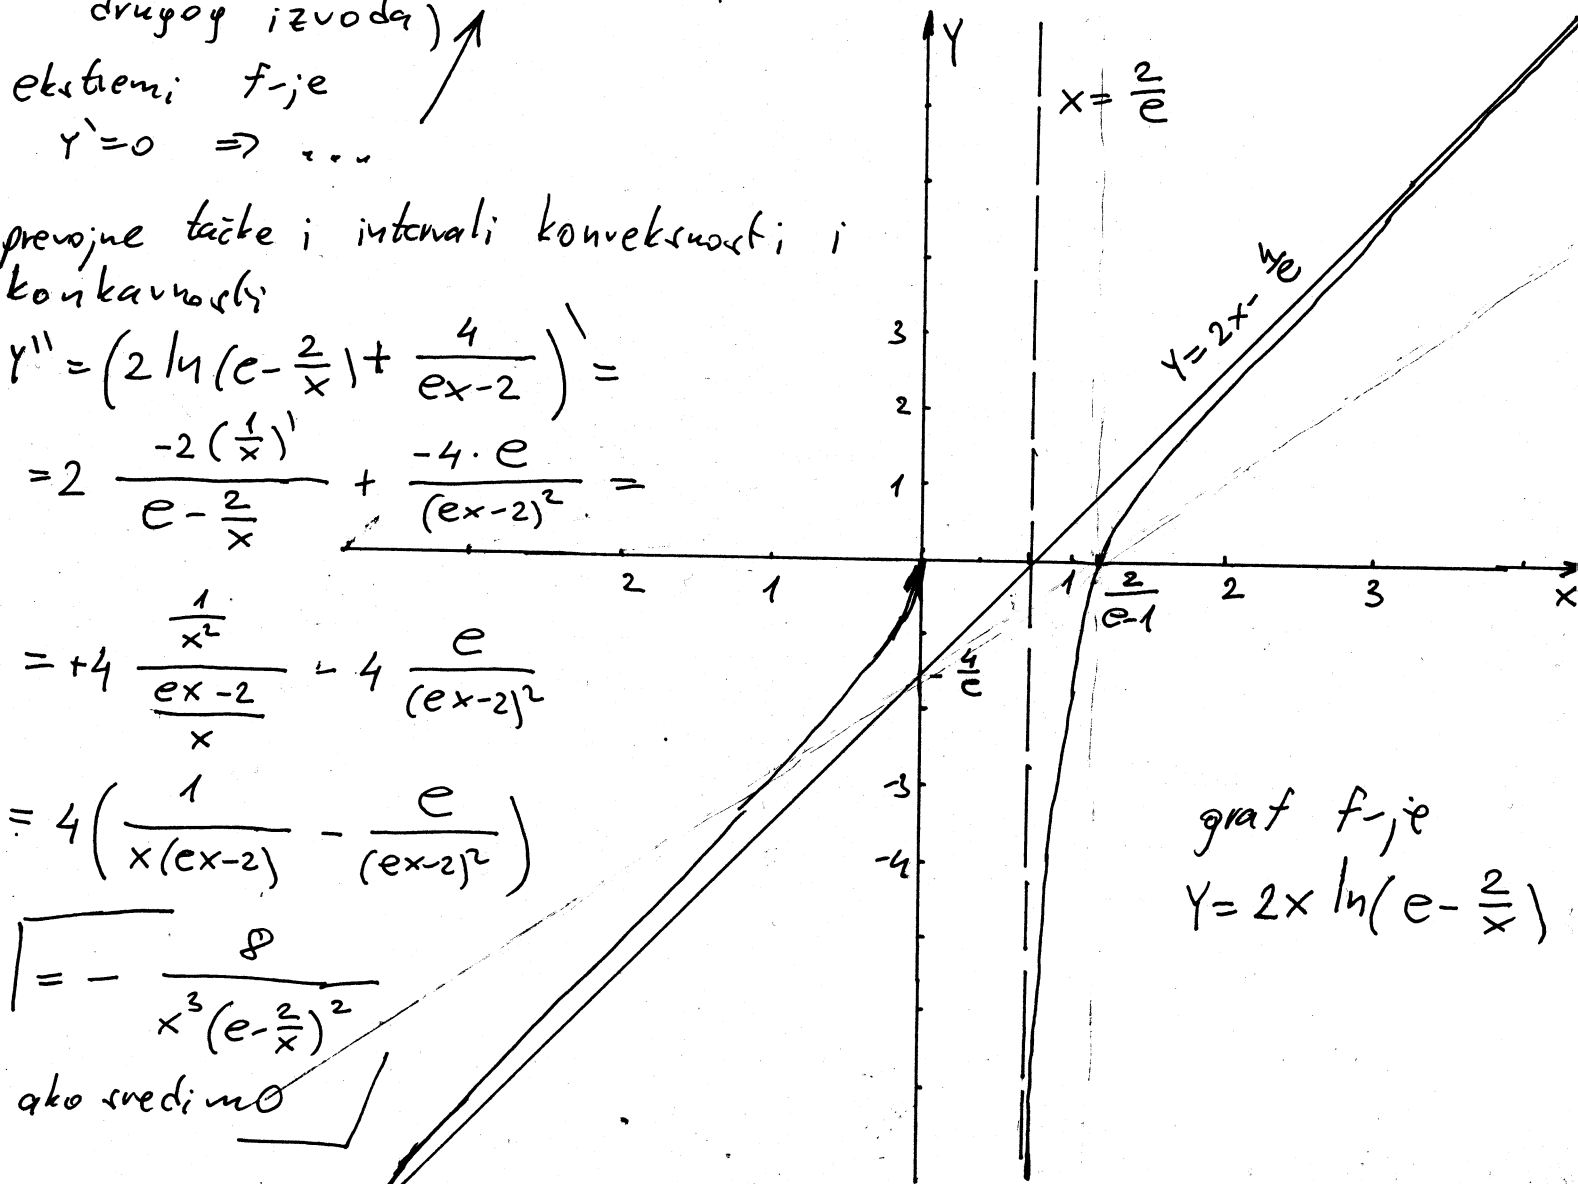 drugog izvoda)
ekstremi f-je
Y'=0 ⇒ ...
prevojne tačke i intervali konveksnosti i
konkavnosti
Y'' = (2 ln(e - 2/x) + 4/(ex-2))' =
= 2 (-2(1/x)')/(e - 2/x) + (-4·e)/(ex-2)² =
= +4 (1/x²)/((ex-2)/x) - 4 e/(ex-2)²
= 4(1/(x(ex-2)) - e/(ex-2)²)
= - 8/(x³(e - 2/x)²)
ako sredimo
Y
x = 2/e
Y = 2x - 4/e
3
2
1
2
1
1
2/(e-1)
2
3
x
-4/e
-3
-4
graf f-je
Y = 2x ln(e - 2/x)